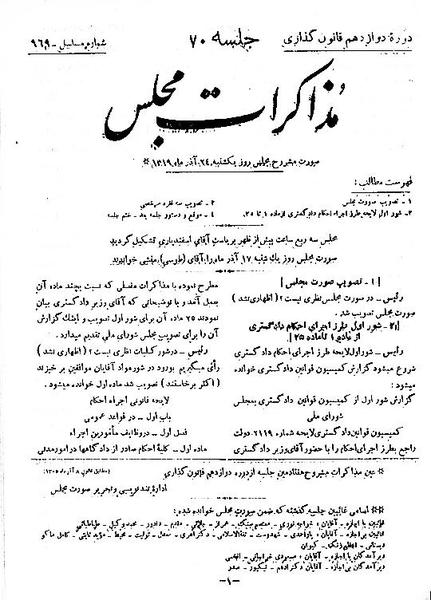 دورهٔ دوازدهم قانون گذاری
جلسه ۷۰
شماره مسلسل - ۹۶۹
مذاکرات مجلس
صورت مشروح مجلس روز یکشنبه ۲۴ آذر ماه ۱۳۱۹ *
فهرست مطالب:
۱ - تصویب صورت مجلس
۲ - شور اول لایحه طرز اجراء احکام دادگستری از ماده ۱ تا ۲۵
۳ - تصویب سه فقره مرخصی
۴ - موقع و دستور جلسه بعد - ختم جلسه
مجلس سه ربع ساعت پیش از ظهر بریاست آقای اسفندیاری تشکیل گردید
صورت مجلس روز یکشنبه ۱۷ آذر ماه را آقای (طوسی) منشی خواندند
[۱ - تصویب صورت مجلس]
رئیس - در صورت مجلس نظری نیست؟ (اظهاری نشد)
تصویب شد.
[۲ - شور اول طرز اجرای احکام دادگستری
از ماده ۱ تا ماده ۲۵]
رئیس - شور اول لایحه طرز اجراء احکام دادگستری
شروع میشود گزارش کمیسیون قوانین دادگستری خوانده
میشود:
گزارش شور اول از کمیسیون قوانین دادگستری بمجلس
شورای ملی
کمیسیون قوانین دادگستری لایحه شماره ۲۱۱۹ دولت
راجع بطرز اجراء احکام را با حضور آقای وزیر دادگستری
مطرح نموده با مذاکرات مفصلی که نسبت بچند ماده آن
بعمل آمد و با توضیحاتی که آقای وزیر دادگستری بیان
نمودند ۲۵ ماده آن برای شور اول تصویب و اینک گزارش
آن را برای تصویب مجلس شورای ملی تقدیم میدارد.
رئیس - در شور کلیات نظری نیست؟ (اظهاری نشد)
رأی میگیریم بورود در شور مواد آقایان موافقین برخیزند
(اکثر برخاستند) تصویب شد ماده اول خوانده میشود.
لایحه قانونی اجراء احکام
باب اول - در قواعد عمومی
فصل اول - در وظایف مأمورین اجراء
ماده اول - کلیهٔ احکام صادر از دادگاهها در امور مدنی
* عین مذاکرات مشروح هفتادمین جلسه از دوره دوازدهم قانون گذاری
اداره تندنویسی و تحریر صورت مجلس
* اسامی غائبین جلسه گذشته که ضمن صورت مجلس خوانده شده:
دیر آمدگان با اجازه - آقایان:
دیر آمدگان بی اجازه - آقایان:
-۱-